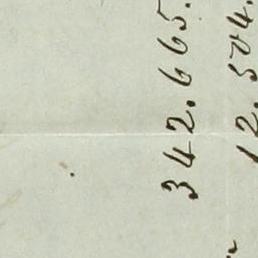 342.665.
12.504.